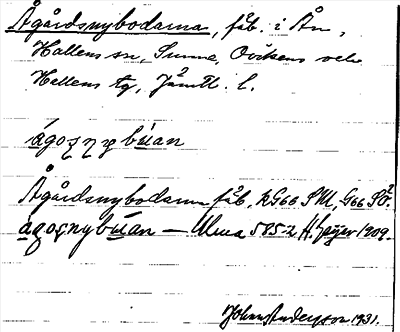 Ågårdsnybodarna, fäb. i Ån,
Hallens sn, Sunne, Ovikens och
Hallens tg, Jämtl. l.
ágosnybúan
Ågårdsnybodarna fäb. KG66 SM, G66 SÖ.
ágosnybúan — Ulma 585:2 H. Geijer 1909.
Johan Andersson 1931.